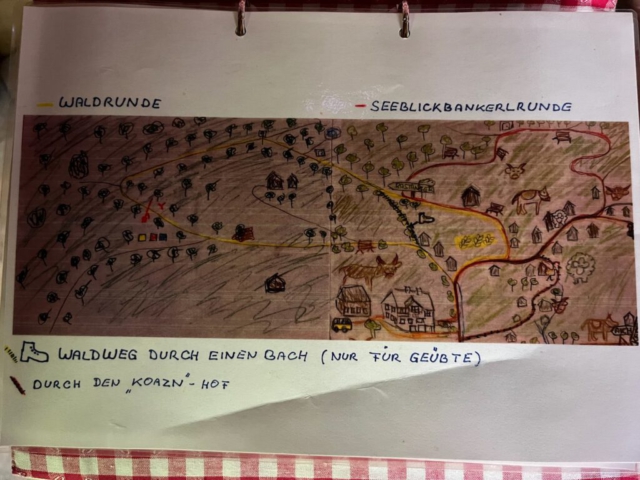 WALDRUNDE
SEEBLICKBANKERLRUNDE
WALDWEG DURCH EINEN BACH (NUR FÜR GEÜBTE)
DURCH DEN „KOAZN"-HOF